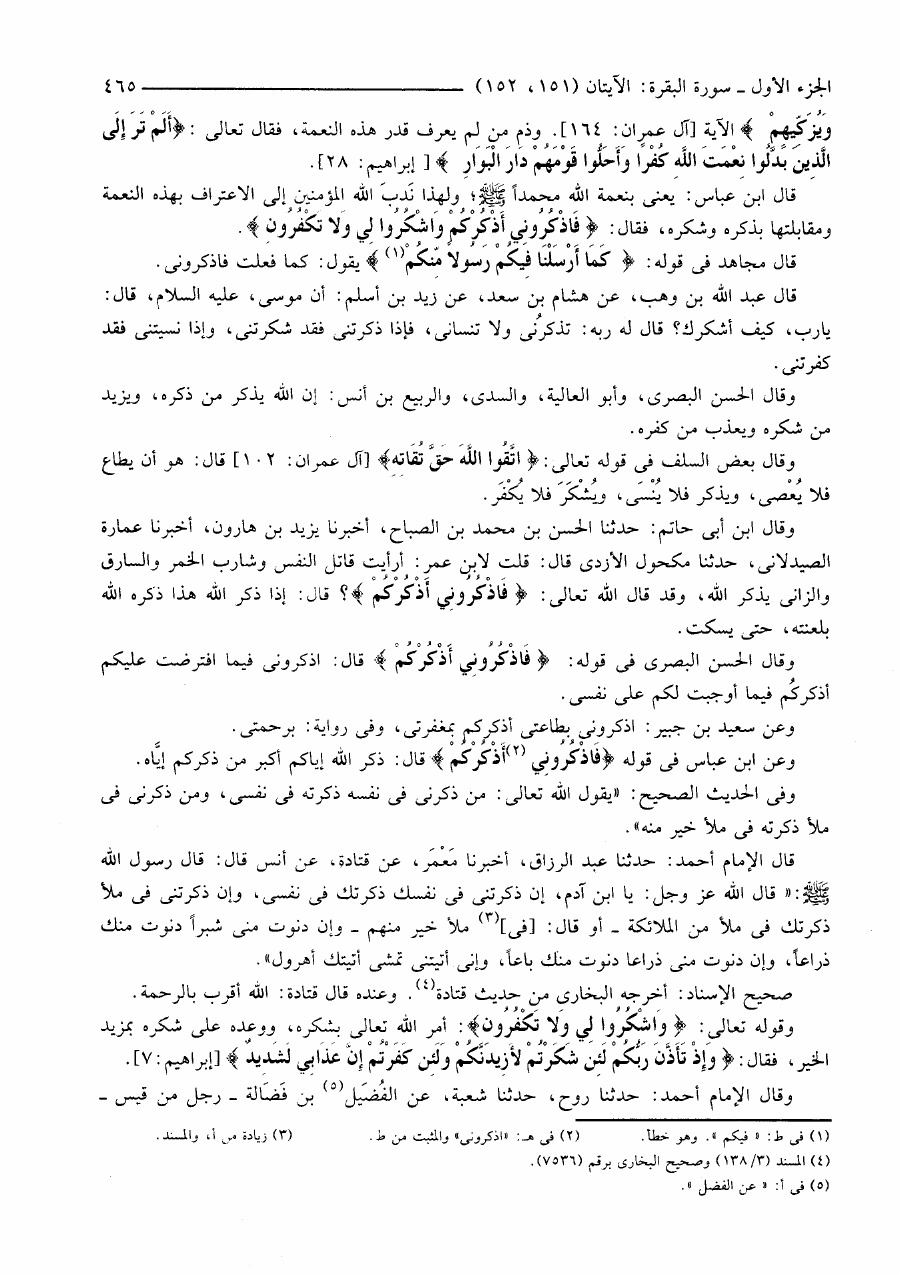 الجزء الأول ـ سورة البقرة: الآيتان (١٥١، ١٥٢) ــــــــــــــــ ٤٦٥
وَيُزَكِّيهِمْ ﴾ الآية [آل عمران: ١٦٤]. وذم من لم يعرف قدر هذه النعمة، فقال تعالى :﴿أَلَمْ تَرَ إِلَى
الَّذِينَ بَدَّلُوا نِعْمَتَ اللَّهِ كُفْرًا وَأَحَلُّوا قَوْمَهُمْ دَارَ الْبَوَارِ ﴾ [ إبراهيم: ٢٨].
قال ابن عباس: يعنى بنعمة الله محمداً ﷺ؛ ولهذا نَدبَ الله المؤمنين إلى الاعتراف بهذه النعمة
ومقابلتها بذكره وشكره، فقال: ﴿ فَاذْكُرُونِي أَذْكُرْكُمْ وَاشْكُرُوا لِي وَلا تَكْفُرُونِ ﴾.
قال مجاهد فى قوله: ﴿ كَمَا أَرْسَلْنَا فِيكُمْ رَسُولاً مِّنكُمْ(١) ﴾ يقول: كما فعلت فاذكرونى.
قال عبد الله بن وهب، عن هشام بن سعد، عن زيد بن أسلم: أن موسى، عليه السلام، قال:
يارب، كيف أشكرك؟ قال له ربه: تذكرُنى ولا تنسانى، فإذا ذكرتنى فقد شكرتنى، وإذا نسيتنى فقد
كفرتنى.
وقال الحسن البصرى، وأبو العالية، والسدى، والربيع بن أنس: إن الله يذكر من ذكره، ويزيد
من شكره ويعذب من كفره.
وقال بعض السلف فى قوله تعالى:﴿ اتَّقُوا اللَّهَ حَقَّ تُقَاتِهِ﴾ [آل عمران: ١٠٢] قال: هو أن يطاع
فلا يُعْصى، ويذكر فلا يُنْسَى، ويُشْكَرَ فلا يُكْفَر.
وقال ابن أبى حاتم: حدثنا الحسن بن محمد بن الصباح، أخبرنا يزيد بن هارون، أخبرنا عمارة
الصيدلانى، حدثنا مكحول الأزدى قال: قلت لابن عمر: أرأيت قاتل النفس وشارب الخمر والسارق
والزانى يذكر الله، وقد قال الله تعالى: ﴿ فَاذْكُرُونِي أَذْكُرْكُمْ ﴾؟ قال: إذا ذكر الله هذا ذكره الله
بلعنته، حتى يسكت.
وقال الحسن البصرى فى قوله: ﴿ فَاذْكُرُونِي أَذْكُرْكُمْ ﴾ قال: اذكرونى فيما افترضت عليكم
أذكركُم فيما أوجبت لكم على نفسى.
وعن سعيد بن جبير: اذكرونى بطاعتى أذكركم بمغفرتى، وفى رواية: برحمتى.
وعن ابن عباس فى قوله ﴿فَاذْكُرُونِي (٢)أَذْكُرْكُمْ ﴾ قال: ذكر الله إياكم أكبر من ذكركم إيَّاه.
وفى الحديث الصحيح: «يقول الله تعالى: من ذكرنى فى نفسه ذكرته فى نفسى، ومن ذكرنى فى
ملأ ذكرته فى ملأ خير منه».
قال الإمام أحمد: حدثنا عبد الرزاق، أخبرنا مَعْمَر، عن قتادة، عن أنس قال: قال رسول الله
ﷺ:« قال الله عز وجل: يا ابن آدم، إن ذكرتنى فى نفسك ذكرتك فى نفسى، وإن ذكرتنى فى ملأ
ذكرتك فى ملأ من الملائكة ـ أو قال: [فى](٣) ملأ خير منهم ـ وإن دنوت منى شبراً دنوت منك
ذراعاً، وإن دنوت منى ذراعا دنوت منك باعاً، وإنى أتيتنى تمشى أتيتك أهرول».
صحيح الإسناد: أخرجه البخارى من حديث قتادة(٤). وعنده قال قتادة: الله أقرب بالرحمة.
وقوله تعالى: ﴿ وَاشْكُرُوا لِي وَلا تَكْفُرُونِ﴾: أمر الله تعالى بشكره، ووعده على شكره بمزيد
الخير، فقال:﴿ وَإِذْ تَأَذَّنَ رَبُّكُمْ لَئِن شَكَرْتُمْ لأَزِيدَنَّكُمْ وَلَئِن كَفَرْتُمْ إِنَّ عَذَابِي لَشَدِيدٌ ﴾ [إبراهيم:٧].
وقال الإمام أحمد: حدثنا روح، حدثنا شعبة، عن الفُضَيل(٥) بن فَضَالة ـ رجل من قيس ـ
(١) فى ط: « فيكم ». وهو خطأ. (٢) فى هـ: «اذكرونى» والمثبت من ط. (٣) زيادة من أ، والمسند.
(٤) المسند (١٣٨/٣) وصحيح البخارى برقم (٧٥٣٦).
(٥) فى أ: « عن الفضل ».